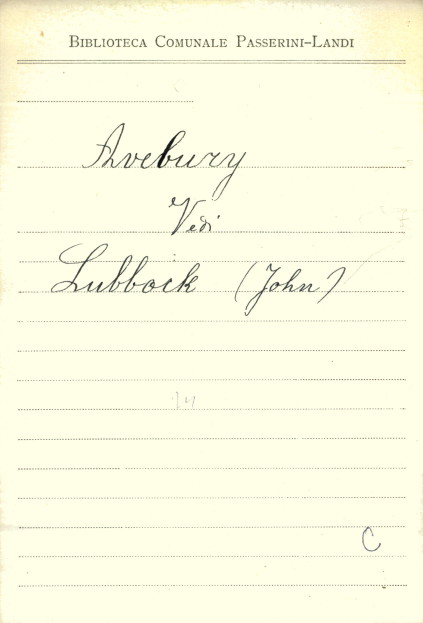 BIBLIOTECA COMUNALE PASSERINI-LANDI
Avebury
Vedi
Lubbock (John)
C